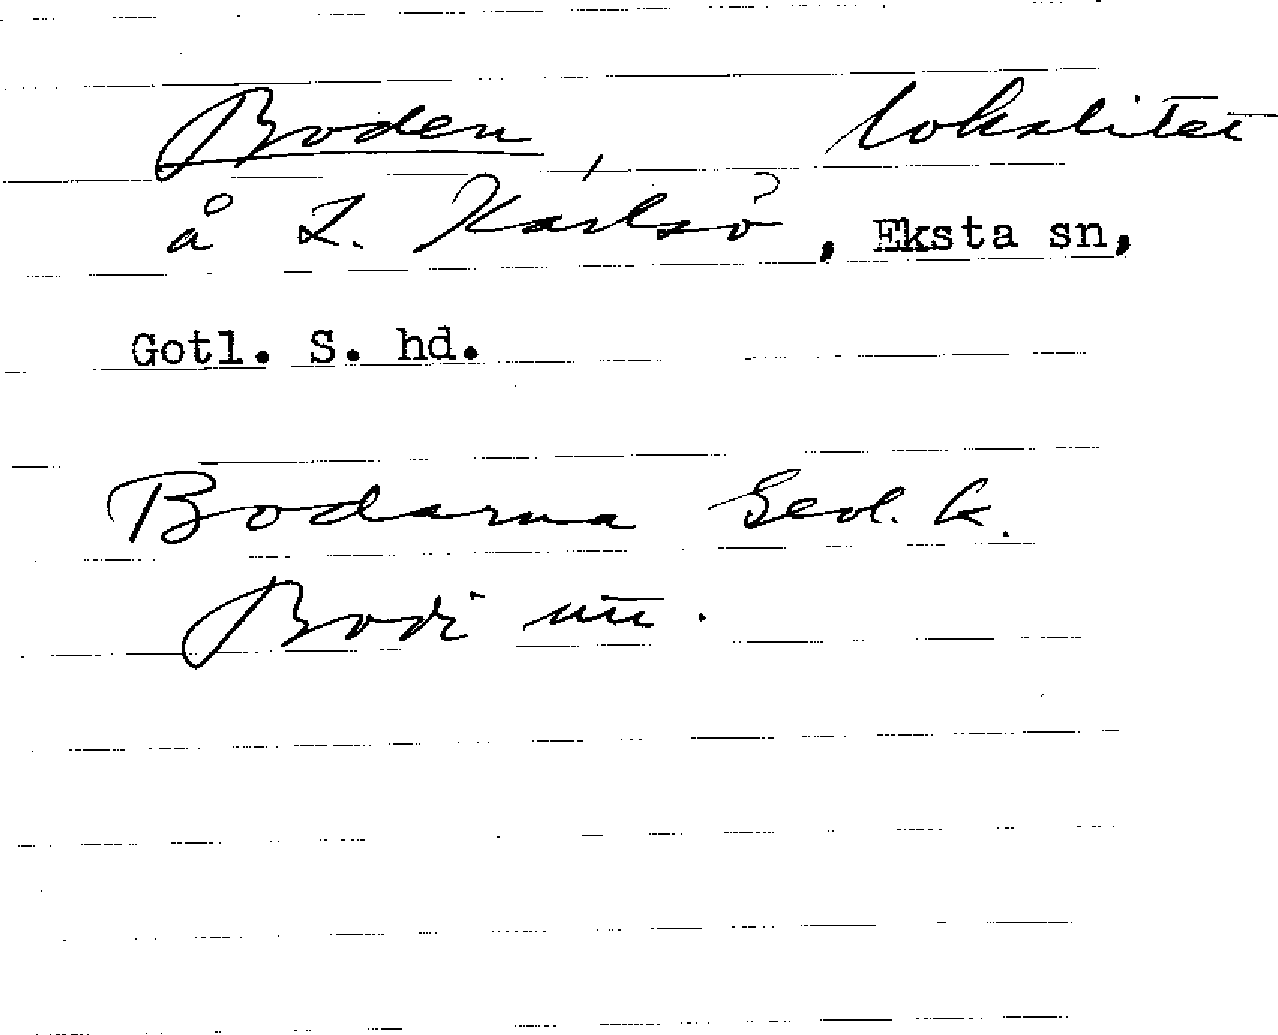 Boden, lokalitet
å L. Karlsö, Eksta sn,
Gotl. S. hd.
Bodarna Geol. k.
Bodi utt.